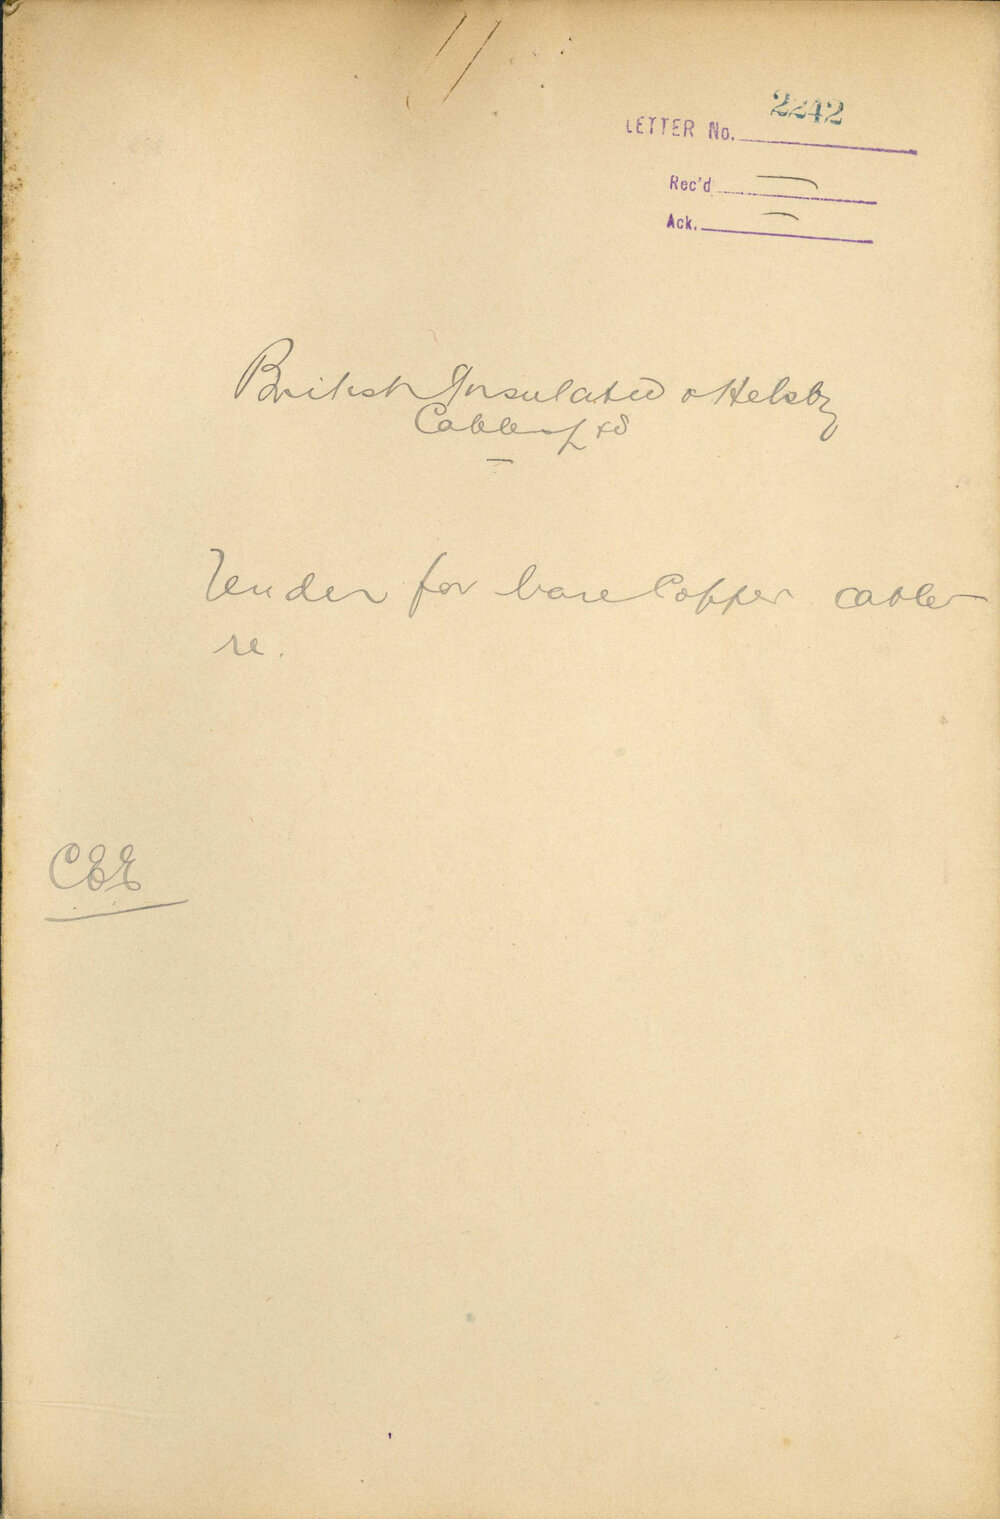 LETTER No. 2242
Rec'd —
Ack. —
British Insulated & Helsby
Cables Ltd
Tender for bare Copper cables
re.
CEE